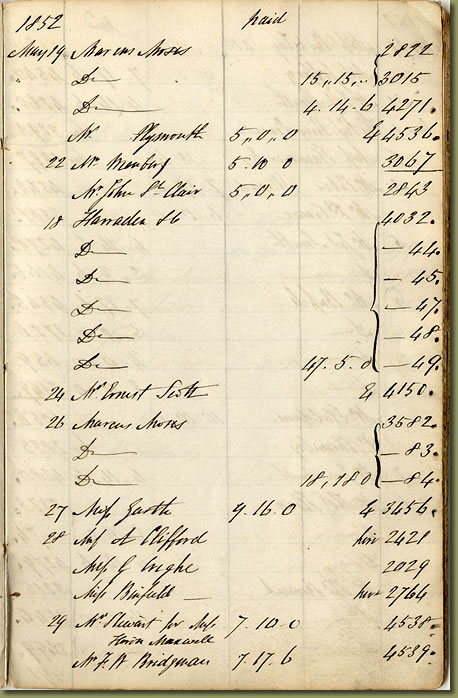 1852 paid
May 19 Marcus Moses 2822
" Do 15,,15,,. 3015
" Do 4.14.6 4271.
Mr Plymouth 5,,0,,0 & 4536.
22 Mr 5.10 0 3067
Mr John St Clair 5,,0,,0 2843
18 Harraden & Co 4032.
Do — 44.
Do — 45.
Do — 47.
Do — 48.
Do 47.5.0 — 49.
24 Mr Ernest Scott & 4150.
26 Marcus Moses 3582.
Do — 83.
Do 18,18 0 — 84.
27 Miss Garth 9.16.0 & 3456.
28 Miss A Clifford hire 2421
Miss G Inghe 2029
Miss Binfield — hire 2764
29 Mr Stewart for Miss 7.10.0 4538
Maxwell
Mr F. W Bridgman 7.17.6 4539.